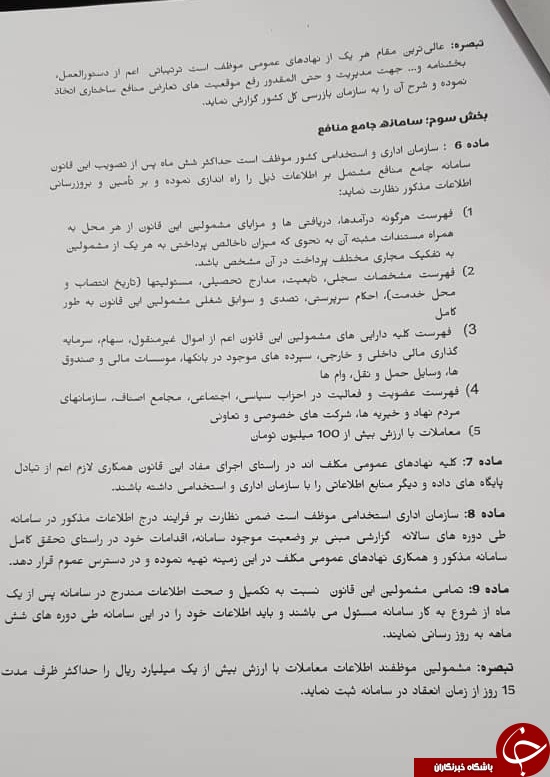 تبصره: عالی‌ترین مقام هر یک از نهادهای عمومی موظف است ترتیباتی اعم از دستورالعمل،
بخشنامه و... جهت مدیریت و حتی المقدور رفع موقعیت های تعارض منافع ساختاری اتخاذ
نموده و شرح آن را به سازمان بازرسی کل کشور گزارش نماید.
بخش سوم: سامانه جامع منافع
ماده 6 : سازمان اداری و استخدامی کشور موظف است حداکثر شش ماه پس از تصویب این قانون
سامانه جامع منافع مشتمل بر اطلاعات ذیل را راه اندازی نموده و بر تأمین و بروزرسانی
اطلاعات مذکور نظارت نماید:
1) فهرست هرگونه درآمدها، دریافتی ها و مزایای مشمولین این قانون از هر محل به
همراه مستندات مثبته آن به نحوی که میزان ناخالص پرداختی به هر یک از مشمولین
به تفکیک مجاری مختلف پرداخت در آن مشخص باشد.
2) فهرست مشخصات سجلی، تابعیت، مدارج تحصیلی، مسئولیتها (تاریخ انتصاب و
محل خدمت)، احکام سرپرستی، تصدی و سوابق شغلی مشمولین این قانون به طور
کامل
3) فهرست کلیه دارایی های مشمولین این قانون اعم از اموال غیرمنقول، سهام، سرمایه
گذاری مالی داخلی و خارجی، سپرده های موجود در بانکها، موسسات مالی و صندوق
ها، وسایل حمل و نقل، وام ها
4) فهرست عضویت و فعالیت در احزاب سیاسی، اجتماعی، مجامع اصناف، سازمانهای
مردم نهاد و خیریه ها، شرکت های خصوصی و تعاونی
5) معاملات با ارزش بیش از 100 میلیون تومان
ماده 7: کلیه نهادهای عمومی مکلف اند در راستای اجرای مفاد این قانون همکاری لازم اعم از تبادل
پایگاه های داده و دیگر منابع اطلاعاتی را با سازمان اداری و استخدامی داشته باشند.
ماده 8: سازمان اداری استخدامی موظف است ضمن نظارت بر فرایند درج اطلاعات مذکور در سامانه
طی دوره های سالانه گزارشی مبنی بر وضعیت موجود سامانه، اقدامات خود در راستای تحقق کامل
سامانه مذکور و همکاری نهادهای عمومی مکلف در این زمینه تهیه نموده و در دسترس عموم قرار دهد.
ماده 9: تمامی مشمولین این قانون نسبت به تکمیل و صحت اطلاعات مندرج در سامانه پس از یک
ماه از شروع به کار سامانه مسئول می باشند و باید اطلاعات خود را در این سامانه طی دوره های شش
ماهه به روز رسانی نمایند.
تبصره: مشمولین موظفند اطلاعات معاملات با ارزش بیش از یک میلیارد ریال را حداکثر ظرف مدت
15 روز از زمان انعقاد در سامانه ثبت نماید.
باشگاه خبرنگاران